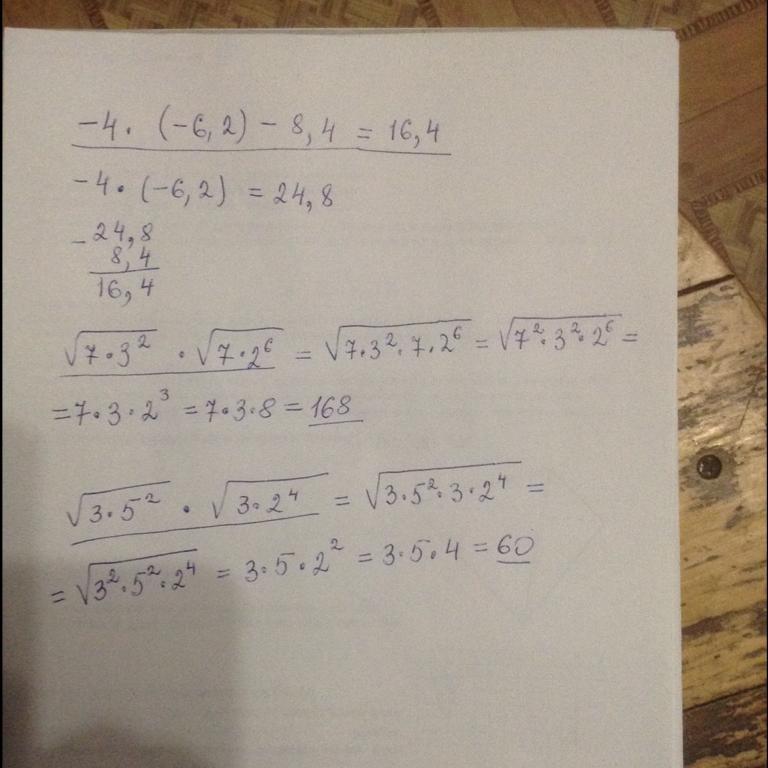 -4 · (-6,2) - 8,4 = 16,4
-4 · (-6,2) = 24,8
- 24,8
8,4
16,4
√7·3² · √7·2⁶ = √7·3²·7·2⁶ = √7²·3²·2⁶ =
= 7·3·2³ = 7·3·8 = 168
√3·5² · √3·2⁴ = √3·5²·3·2⁴ =
= √3²·5²·2⁴ = 3·5·2² = 3·5·4 = 60